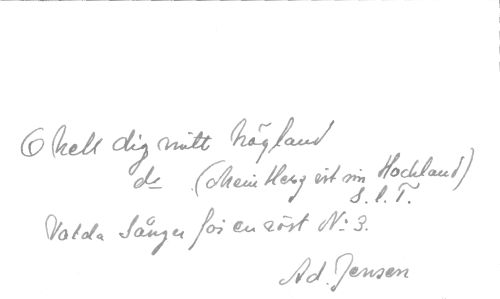 O hell dig mitt högland
do (Mein Herz ist im Hochland)
S. l. T.
Valda Sånger för en röst No 3.
Ad. Jensen